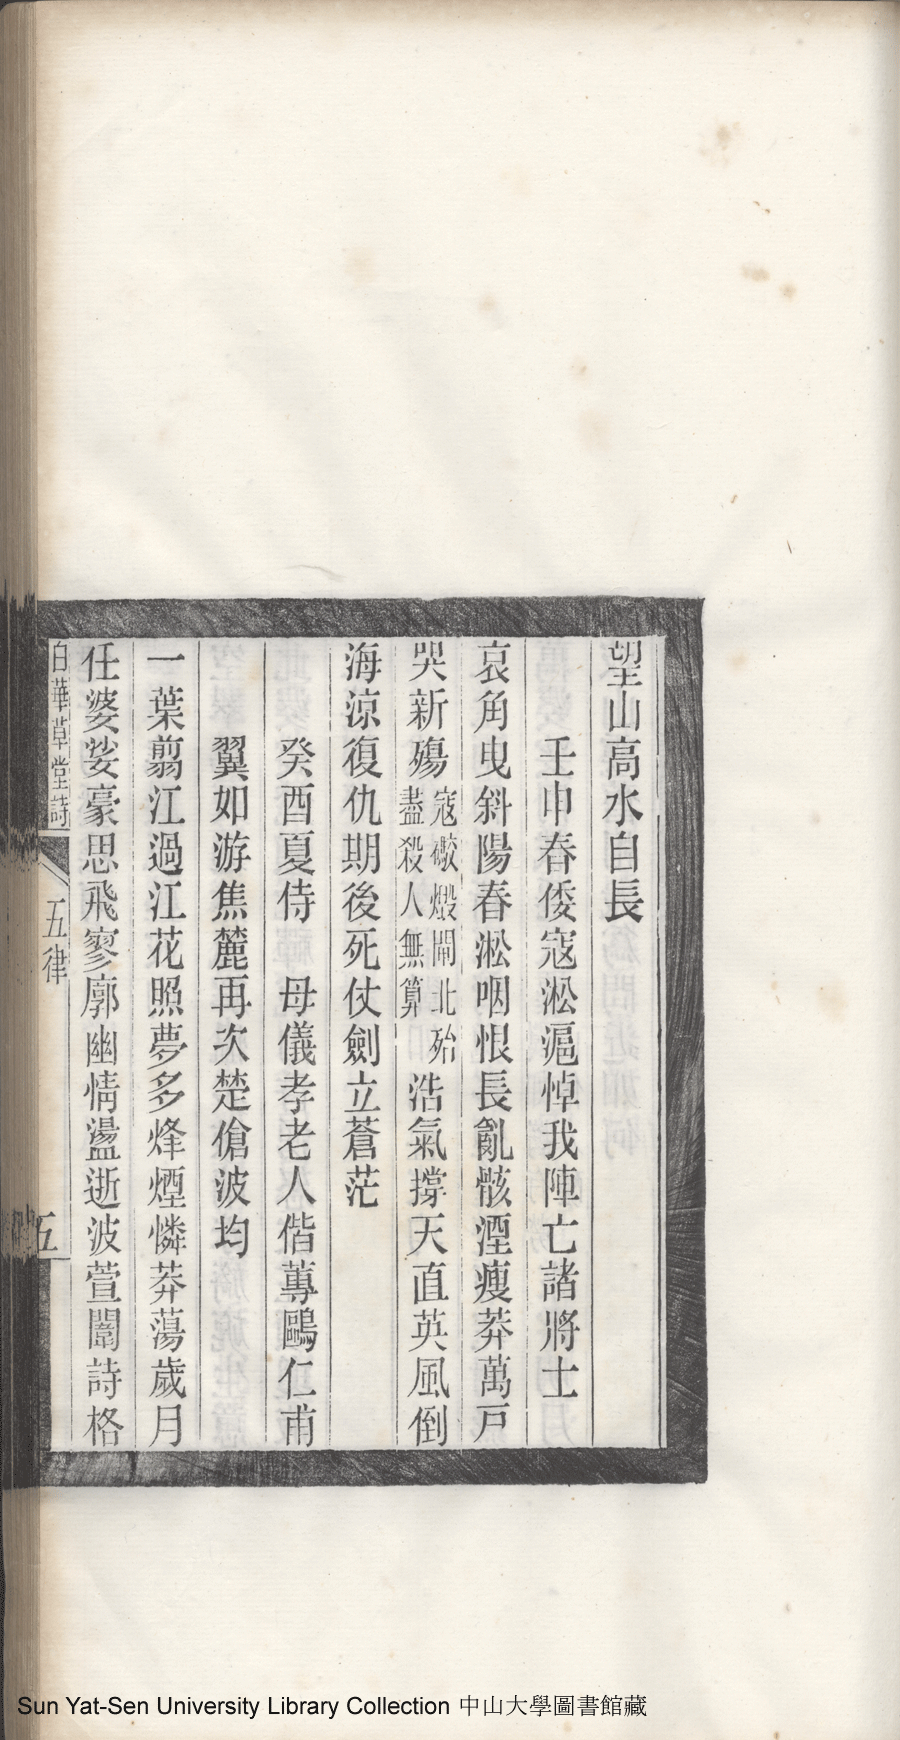 望山高水自長
壬申春倭寇淞滬悼我陣亡諸將士
哀角曳斜陽春淞咽恨長亂骸湮瘦莽萬戶
哭新殤寇礮燬閘北殆盡殺人無算浩氣撐天直英風倒
海涼復仇期後死仗劍立蒼茫
癸酉夏侍　母儀孝老人偕蓴鷗仁甫
翼如游焦麓再次楚傖波均
一葉翦江過江花照夢多烽煙憐莽蕩歲月
任婆娑豪思飛寥廓幽情盪逝波萱闈詩格
白華草堂詩
五律
五
Sun Yat-Sen University Library Collection 中山大學圖書館藏